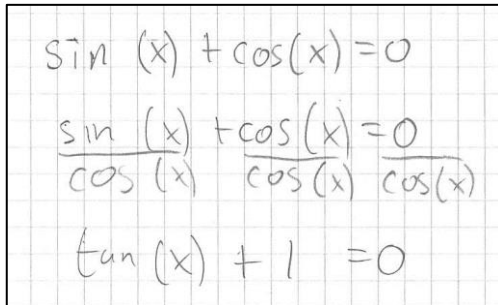 sin (x) + cos(x) = 0
sin (x) + cos(x) = 0
cos (x) cos(x) cos(x)
tan (x) + 1 = 0